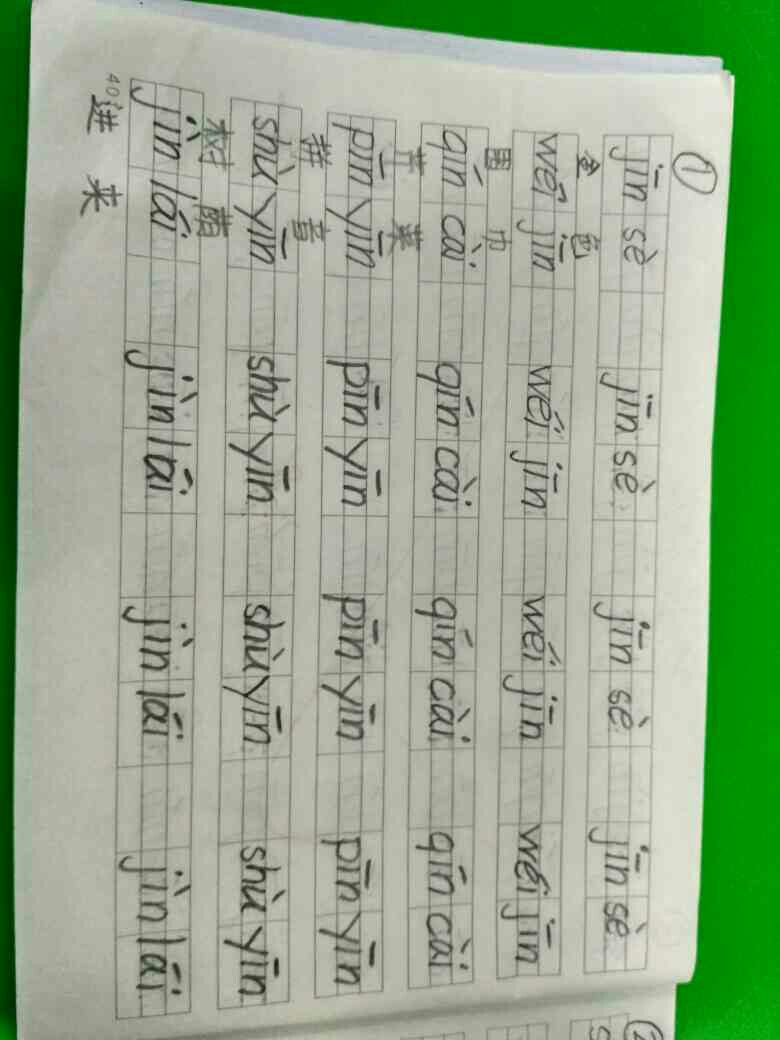 ①
jīn sè jīn sè jīn sè jīn sè
金色
wéi jīn wéi jīn wéi jīn wéi jīn
围巾
qín cài qín cài qín cài qín cài
芹菜
pīn yīn pīn yīn pīn yīn pīn yīn
拼音
shù yīn shù yīn shù yīn shù yīn
树荫
jìn lái jìn lái jìn lái jìn lái
进来
40